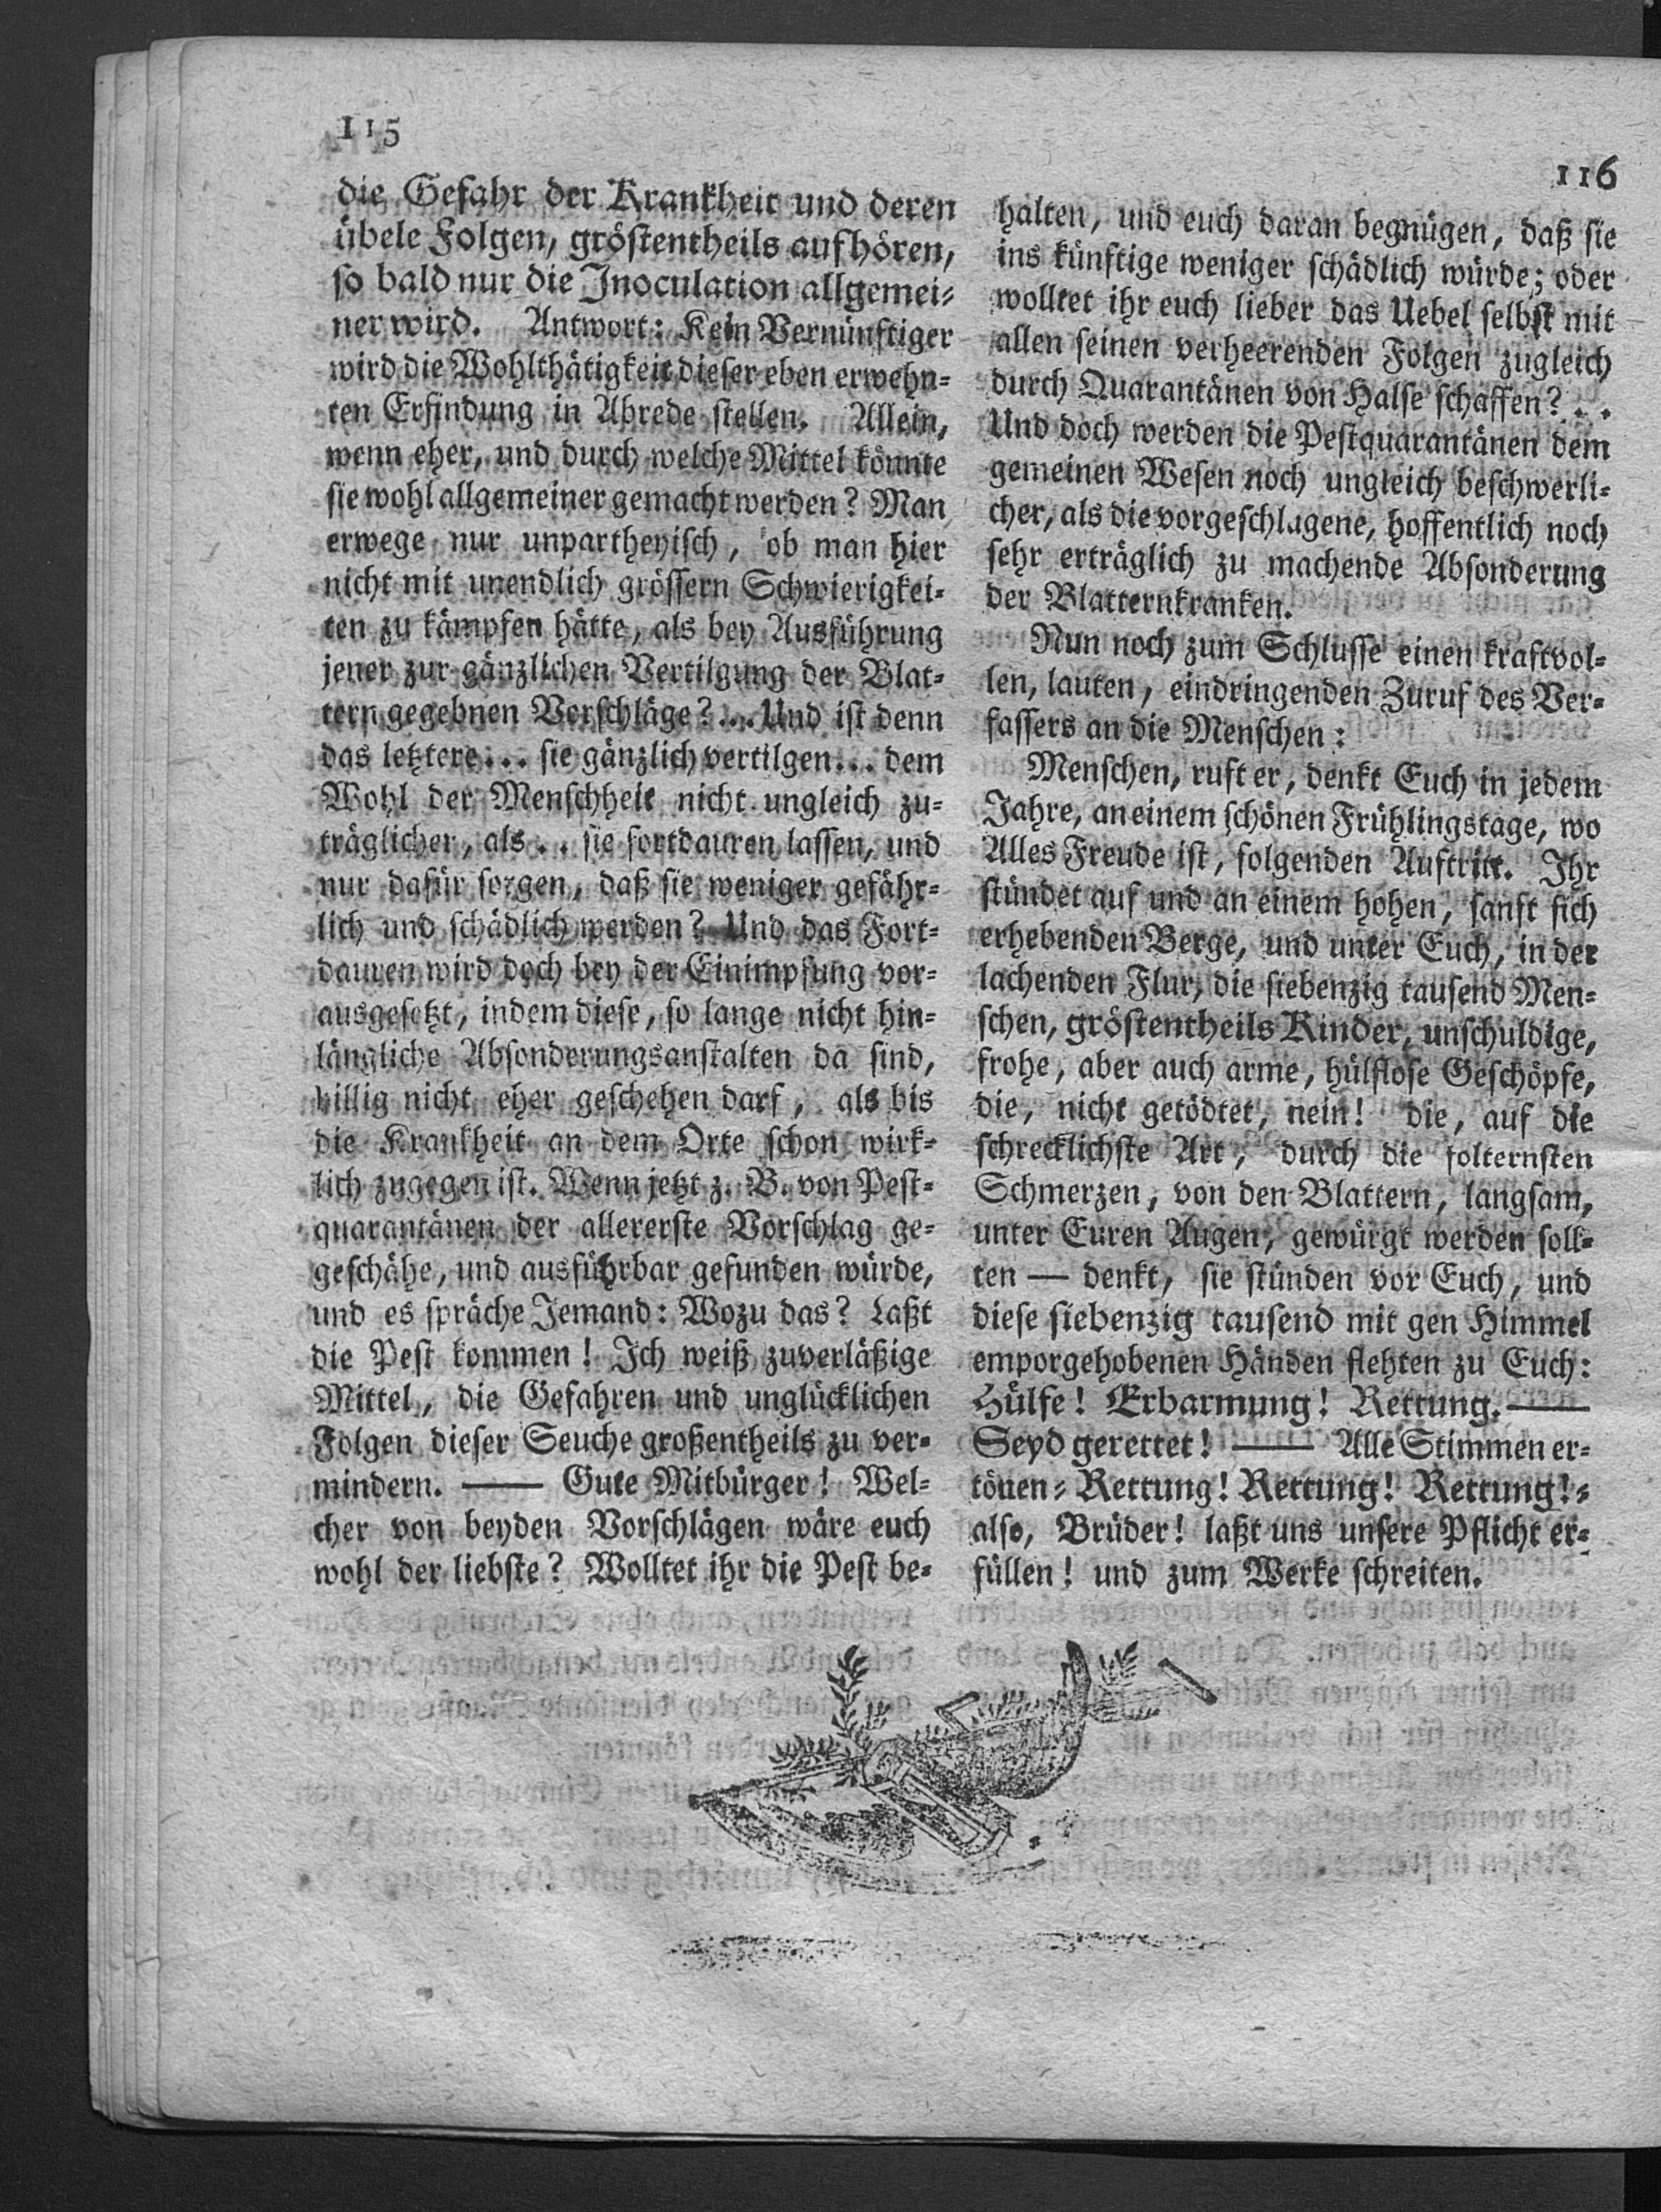 115
die Gefahr der Krankheit und deren
übele Folgen, gröstentheils aufhören,
so bald nur die Inoculation allgemei-
ner wird. Antwort: Kein Vernünftiger
wird die Wohlthätigkeit dieser eben erwehn-
ten Erfindung in Abrede stellen. Allein,
wenn eher, und durch welche Mittel könnte
sie wohl allgemeiner gemacht werden? Man
erwege nur unpartheyisch, ob man hier
nicht mit unendlich grössern Schwierigkei-
ten zu kämpfen hätte, als bey Ausführung
jener zur gänzlichen Vertilgung der Blat-
tern gegebnen Vorschläge?... Und ist denn
das letztere... sie gänzlich vertilgen... dem
Wohl der Menschheit nicht ungleich zu-
träglicher, als.. sie fortdauren lassen, und
nur dafür sorgen, daß sie weniger gefähr-
lich und schädlich werden? Und das Fort-
dauren wird doch bey der Einimpfung vor-
ausgesetzt, indem diese, so lange nicht hin-
längliche Absonderungsanstalten da sind,
billig nicht eher geschehen darf, als bis
die Krankheit an dem Orte schon wirk-
lich zugegen ist. Wenn jetzt z. B. von Pest-
quarantänen der allererste Vorschlag ge-
geschähe, und ausführbar gefunden würde,
und es spräche Jemand: Wozu das? Laßt
die Pest kommen! Ich weiß zuverläßige
Mittel, die Gefahren und unglücklichen
Folgen dieser Seuche großentheils zu ver-
mindern. — Gute Mitbürger! Wel-
cher von beyden Vorschlägen wäre euch
wohl der liebste? Wolltet ihr die Pest be-
116
halten, und euch daran begnügen, daß sie
ins künftige weniger schädlich würde; oder
wolltet ihr euch lieber das Uebel selbst mit
allen seinen verheerenden Folgen zugleich
durch Quarantänen von Halse schaffen?...
Und doch werden die Pestquarantänen dem
gemeinen Wesen noch ungleich beschwerli-
cher, als die vorgeschlagene, hoffentlich noch
sehr erträglich zu machende Absonderung
der Blatternkranken.
Nun noch zum Schlusse einen kraftvol-
len, lauten, eindringenden Zuruf des Ver-
fassers an die Menschen:
Menschen, ruft er, denkt Euch in jedem
Jahre, an einem schönen Frühlingstage, wo
Alles Freude ist, folgenden Auftritt. Ihr
stündet auf und an einem hohen, sanft sich
erhebenden Berge, und unter Euch, in der
lachenden Flur, die siebenzig tausend Men-
schen, gröstentheils Kinder, unschuldige,
frohe, aber auch arme, hülflose Geschöpfe,
die, nicht getödtet, nein! die, auf die
schrecklichste Art, durch die folternsten
Schmerzen, von den Blattern, langsam,
unter Euren Augen, gewürgt werden soll-
ten — denkt, sie stünden vor Euch, und
diese siebenzig tausend mit gen Himmel
emporgehobenen Händen flehten zu Euch:
Hülfe! Erbarmung! Rettung. —
Seyd gerettet! — Alle Stimmen er-
tönen - Rettung! Rettung! Rettung! -
also, Brüder! laßt uns unsere Pflicht er-
füllen! und zum Werke schreiten.